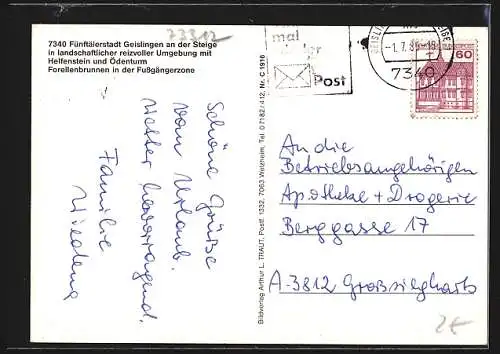 77312
7340 Fünftälerstadt Geislingen an der Steige
in landschaftlicher reizvoller Umgebung mit
Helfenstein und Ödenturm
Forellenbrunnen in der Fußgängerzone
Schöne Grüße
vom Urlaub.
Wetter hervorragend.
Familie
Bildverlag Arthur L. TRAUT, Postf. 1332, 7063 Welzheim, Tel. 0 7182 / 412, Nr. C 1916
mal
Post
-1.7.8
7340
60
An die
Betriebsangehörigen
Apotheke + Drogerie
Berggasse 17
A-3812 Großsiegharts
2€